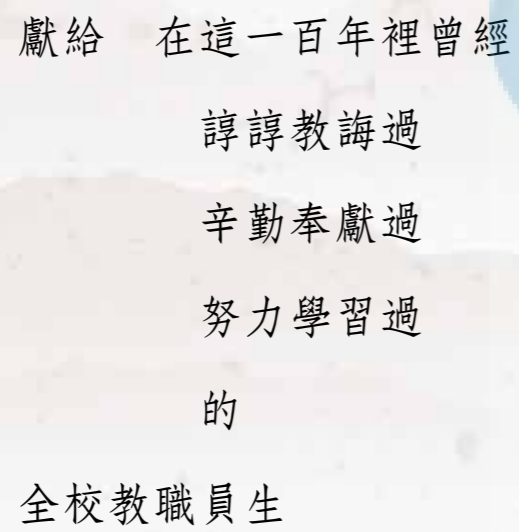 獻給　在這一百年裡曾經
諄諄教誨過
辛勤奉獻過
努力學習過
的
全校教職員生